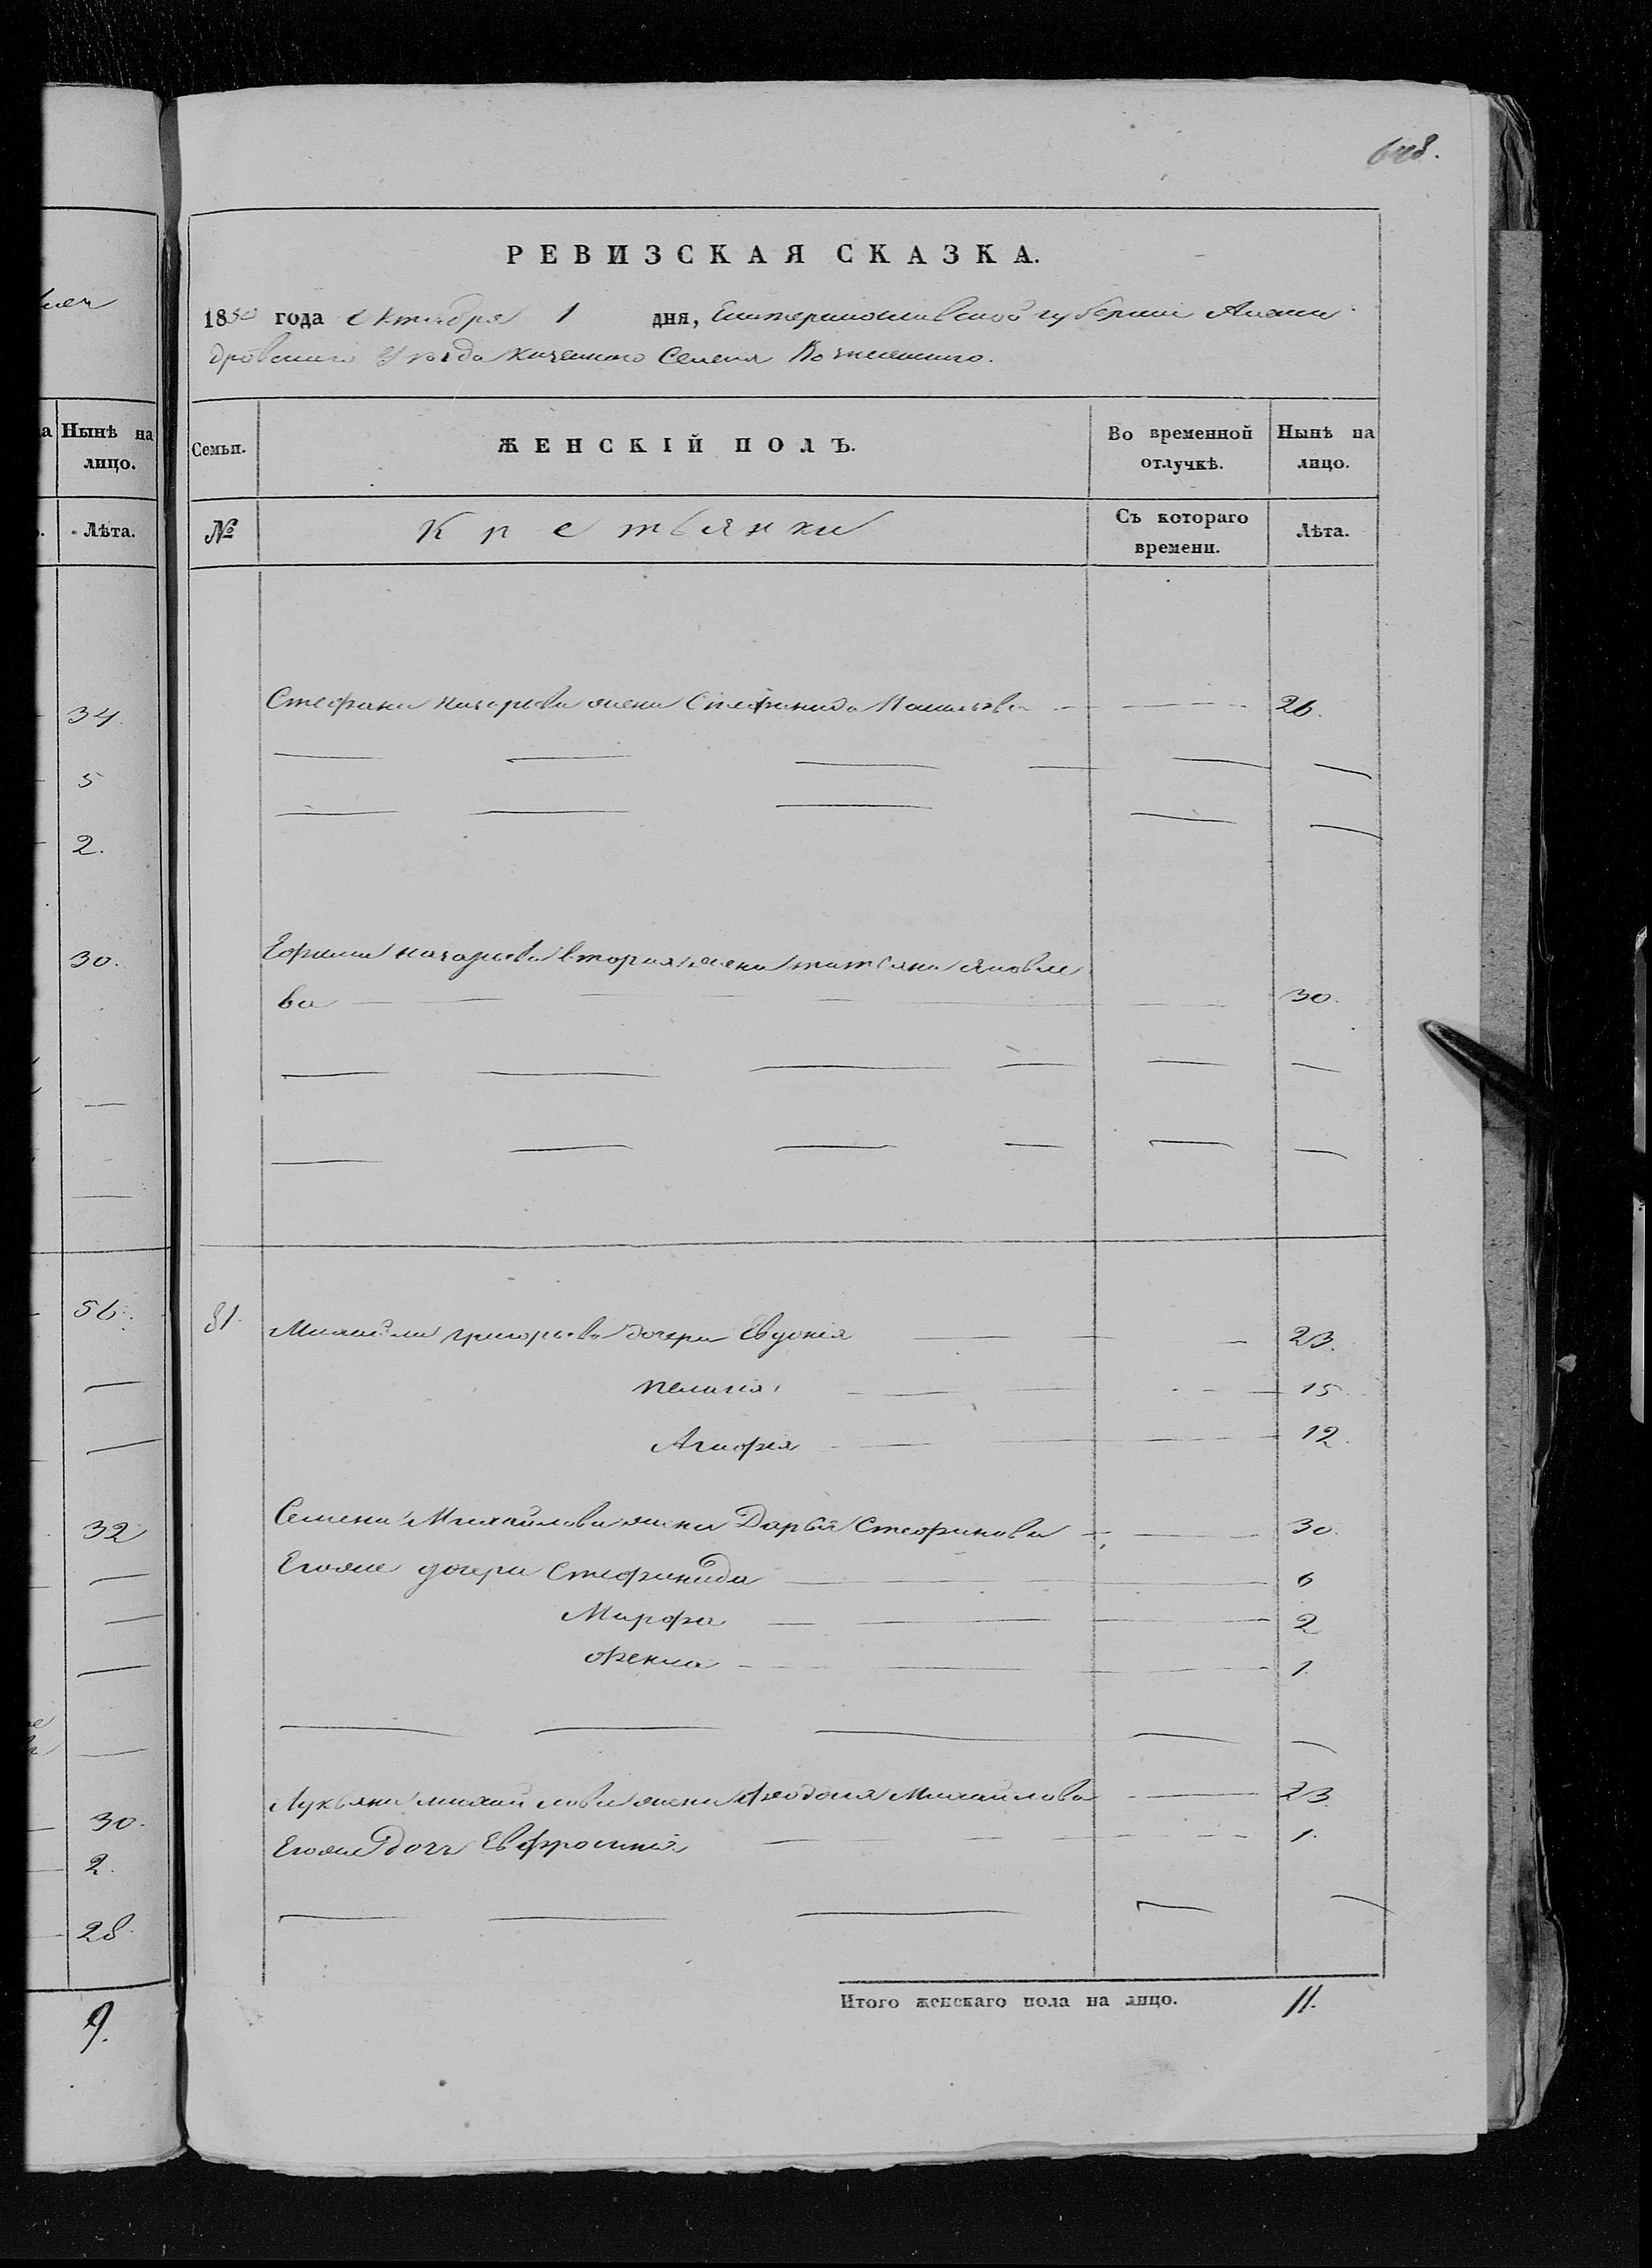 648.
РЕВИЗСКАЯ СКАЗКА.
1850 года Октября 1 дня, Екатеринославской губернии Алексан
дровского Уезда казенного Селения Вознесенского.
Семьи.
ЖЕНСКІЙ ПОЛЪ.
Во временной отлучкѣ.
Нынѣ на лицо.
№
Крестьянки
Съ котораго времени.
Лѣта.
Стефана Назарьева жена Степанида 26.
Ефима Назарьева вторая жена татьяна яковле
ва 30.
81. Михайла григорьева дочери Евдокія 23.
пелагія 15.
Агафія 12.
Семена Михайлова жена Дарья Стефанова 30.
Егоже дочери Стефанида 6
Марфа 2
фекла 1.
Лукьяна михайлова жена феодосия Михайлова 23.
Егоже дочь Евфросинія 1.
Итого женскаго пола на лицо. 11.
а Нынѣ на лицо.
Лѣта.
34.
5
2.
30.
56.
32
30.
2.
28.
9.